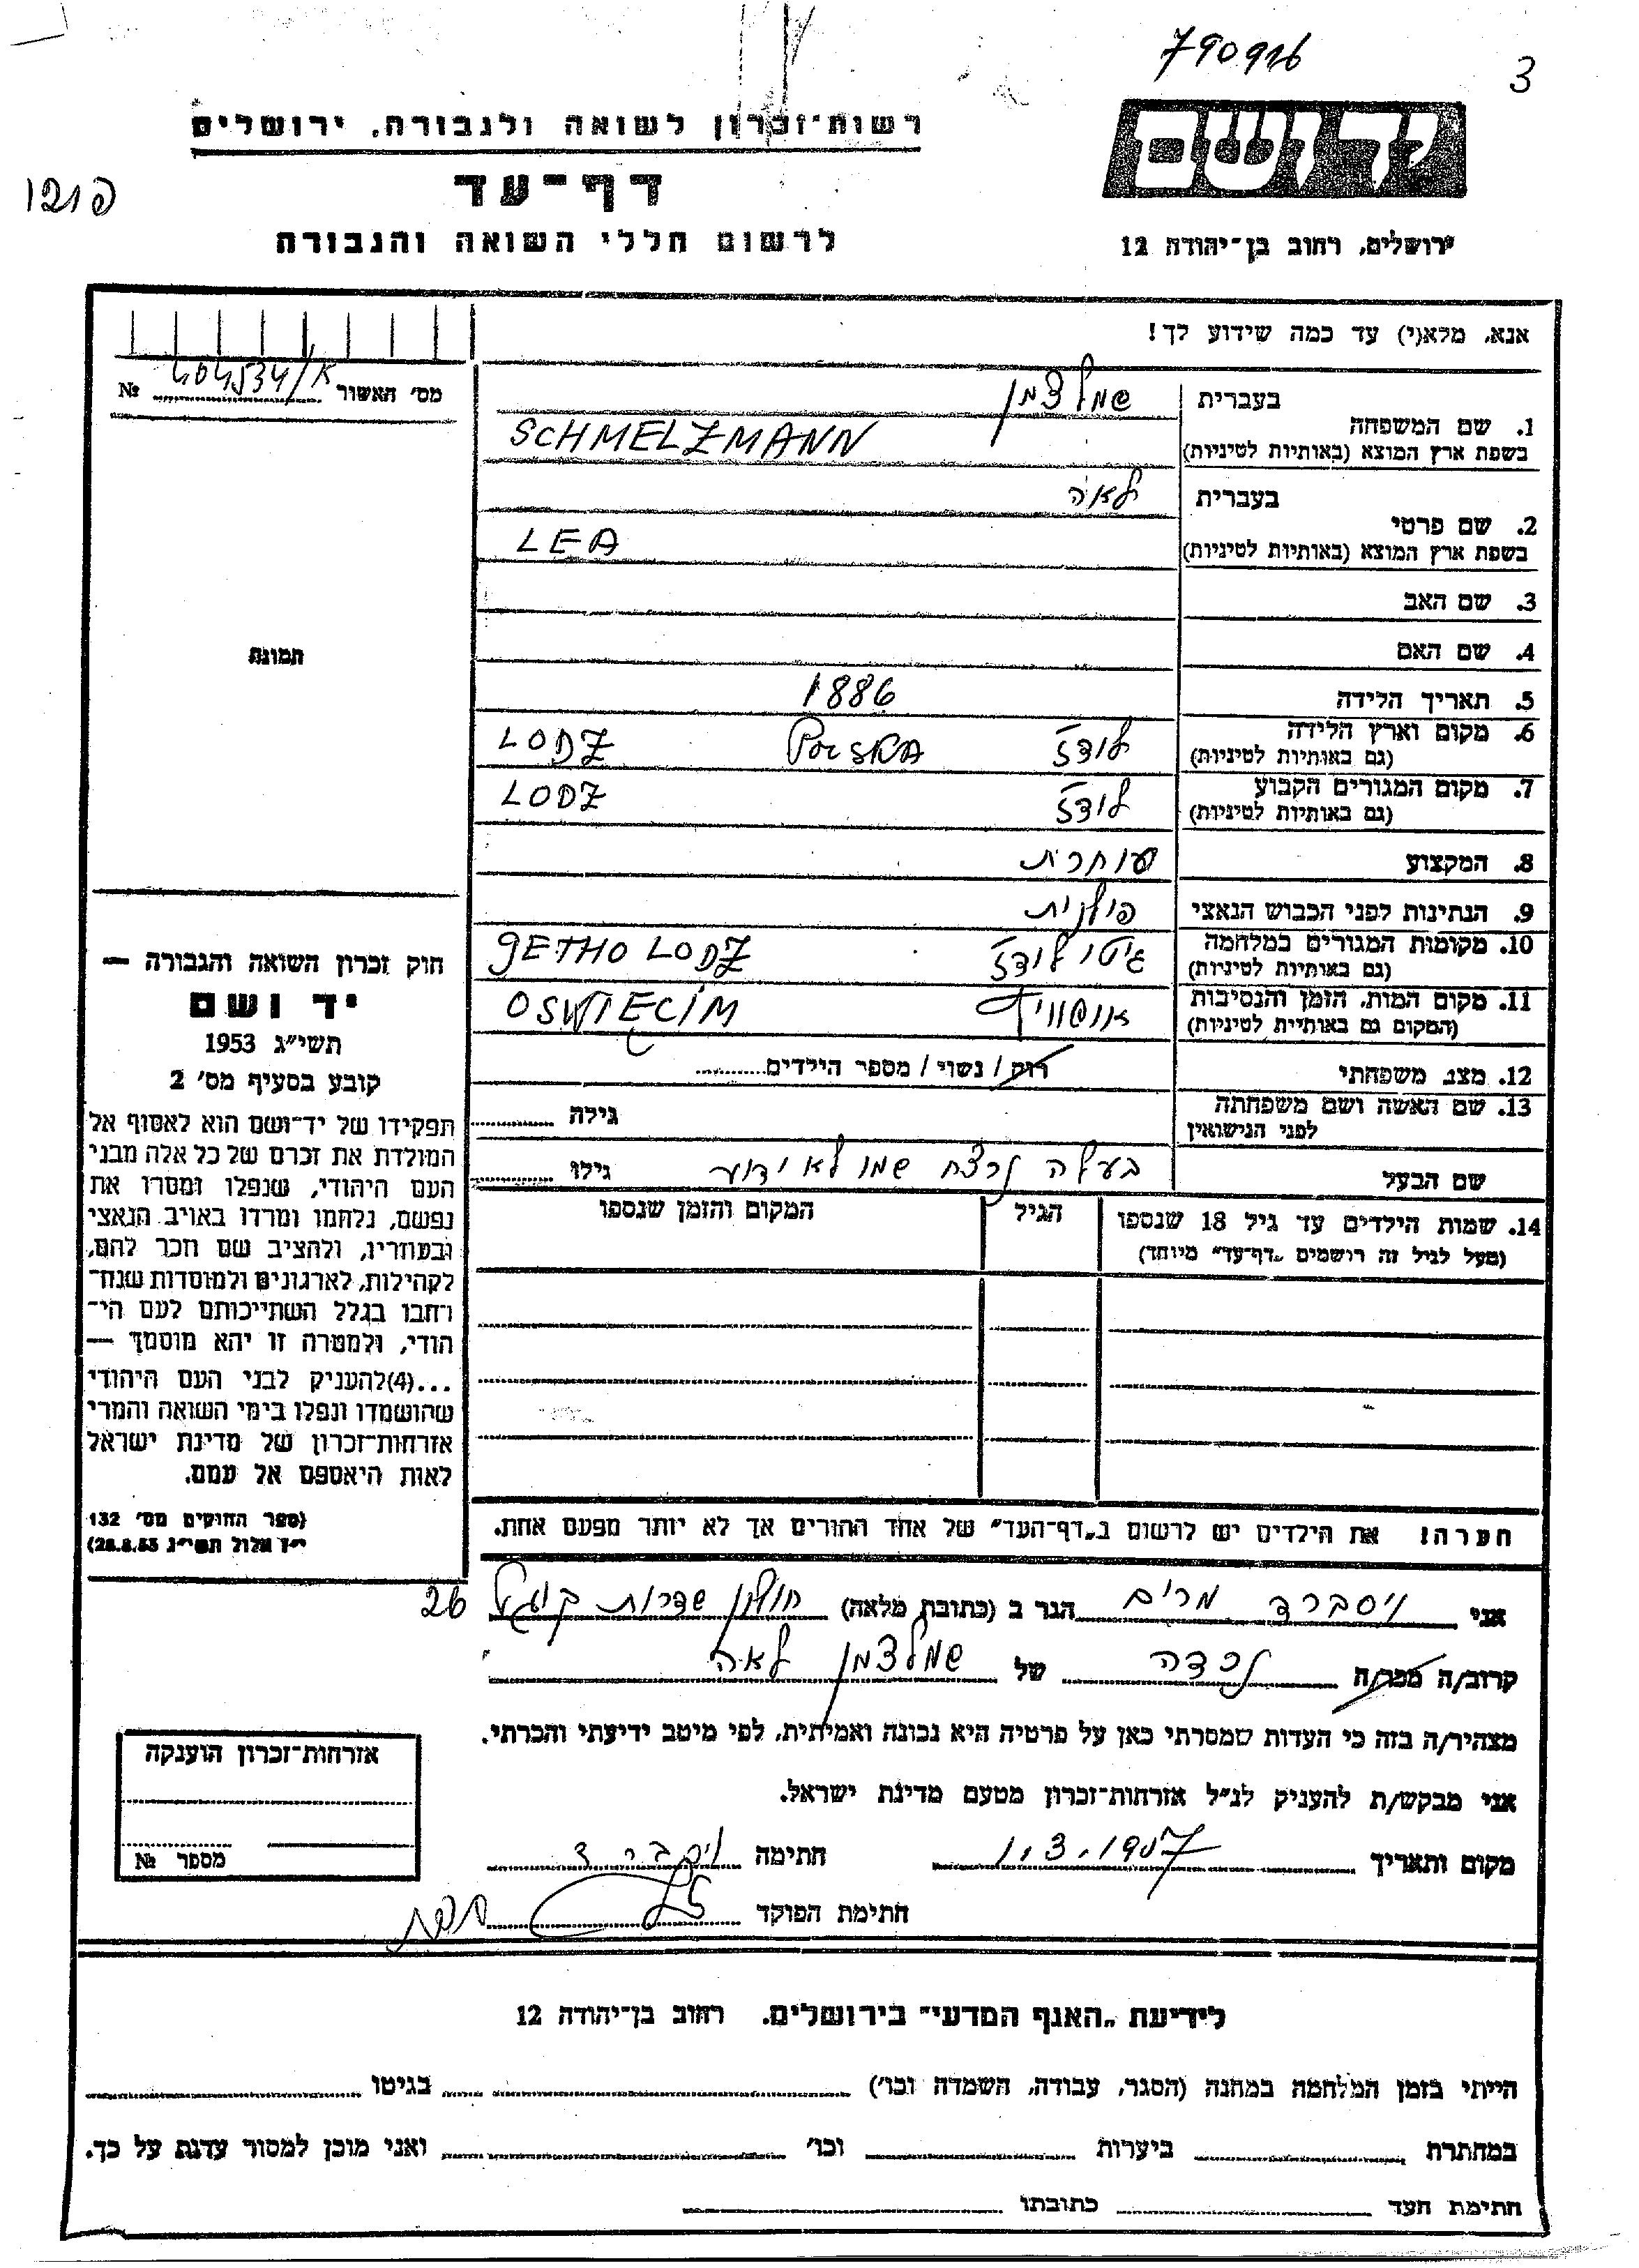 790926
3
רשות־זכרון לשואה ולגבורה, ירושלים
יד ושם
דף־עד
לרשום חללי השואה והגבורה
ירושלים, רחוב בן־יהודה 12
אנא, מלא(י) עד כמה שידוע לך!
מס' האשור 404534/א №
1. שם המשפחה
בעברית שמלצמן
בשפת ארץ המוצא (באותיות לטיניות) SCHMELZMANN
2. שם פרטי
בעברית לאה
בשפת ארץ המוצא (באותיות לטיניות) LEA
3. שם האב
4. שם האם
תמונה
5. תאריך הלידה 1886
6. מקום וארץ הלידה (גם באותיות לטיניות) לודז POLSKA LODZ
7. מקום המגורים הקבוע (גם באותיות לטיניות) לודז LODZ
8. המקצוע סוחרת
9. הנתינות לפני הכבוש הנאצי פולנית
10. מקומות המגורים במלחמה (גם באותיות לטיניות) גיטו לודז GETHO LODZ
11. מקום המות, הזמן והנסיבות (המקום גם באותיות לטיניות) אושוויץ OSWIĘCIM
12. מצב משפחתי רוק / נשוי / מספר הילדים
13. שם האשה ושם משפחתה לפני הנישואין גילה
שם הבעל בעלה נרצח שמו לא ידוע גילו
14. שמות הילדים עד גיל 18 שנספו (מעל לגיל זה רושמים „דף־עד" מיוחד) הגיל המקום והזמן שנספו
חוק זכרון השואה והגבורה —
יד ושם
תשי"ג 1953
קובע בסעיף מס' 2
תפקידו של יד־ושם הוא לאסוף אל
המולדת את זכרם של כל אלה מבני
העם היהודי, שנפלו ומסרו את
נפשם, נלחמו ומרדו באויב הנאצי
ובעוזריו, ולהציב שם וזכר להם,
לקהילות, לארגונים ולמוסדות שנח־
רבו בגלל השתייכותם לעם הי־
הודי, ולמטרה זו יהא מוסמך —
...(4)להעניק לבני העם היהודי
שהושמדו ונפלו בימי השואה והמרי
אזרחות־זכרון של מדינת ישראל
לאות היאספם אל עמם.
(ספר החוקים מס' 132
י"ז אלול תשי"ג 28.8.53)
הערה! את הילדים יש לרשום ב„דף־העד" של אחד ההורים אך לא יותר מפעם אחת.
אני ויסברד מרים הגר ב (כתובת מלאה) חולון שדרות קוגל 26
קרוב/ה מכר/ה נכדה של שמלצמן לאה
מצהיר/ה בזה כי העדות שמסרתי כאן על פרטיה היא נכונה ואמיתית, לפי מיטב ידיעתי והכרתי.
אני מבקש/ת להעניק לנ"ל אזרחות־זכרון מטעם מדינת ישראל.
מקום ותאריך 1.3.1957 חתימה ויסברד
חתימת הפוקד
אזרחות־זכרון הוענקה
מספר №
לידיעת „האגף המדעי" בירושלים. רחוב בן־יהודה 12
הייתי בזמן המלחמה במחנה (הסגר, עבודה, השמדה וכו') בגיטו
במחתרת ביערות וכו' ואני מוכן למסור עדות על כך.
חתימת העד כתובתו